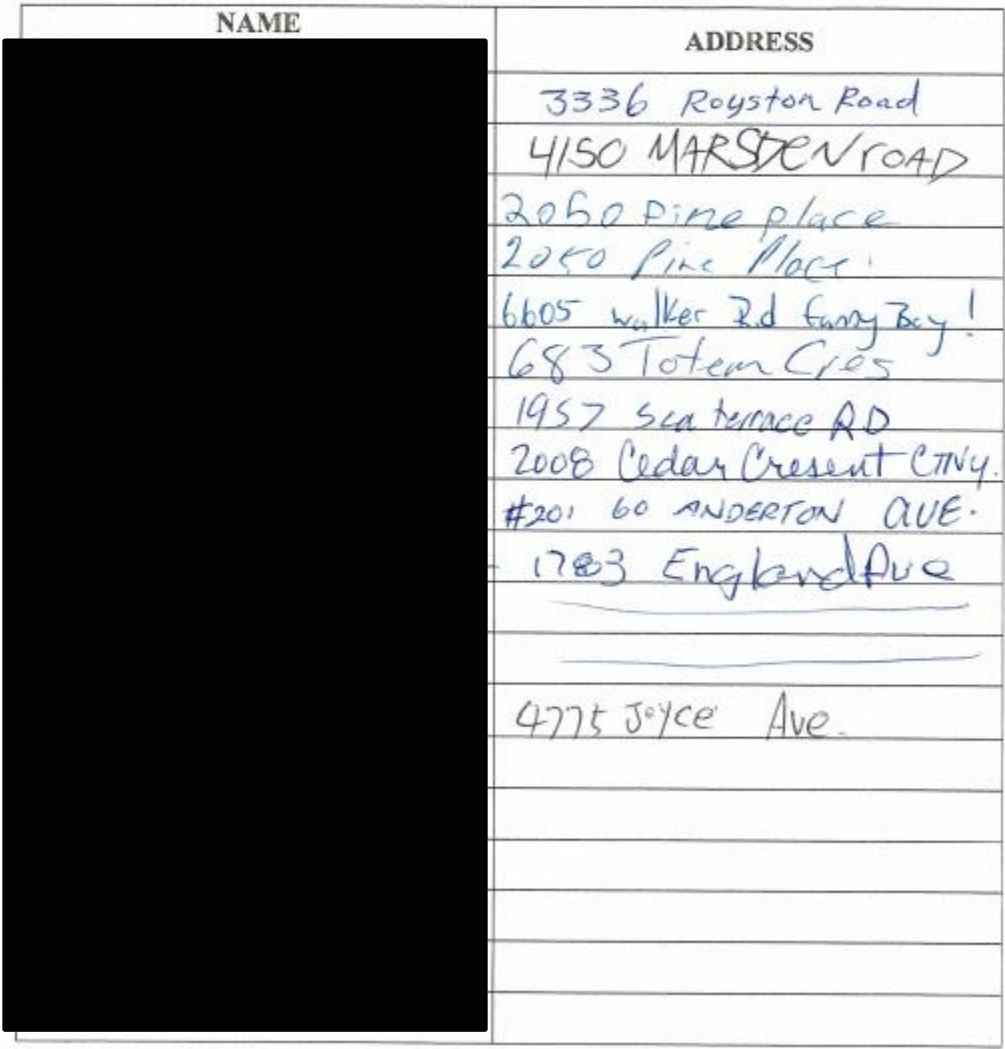 NAME
ADDRESS
3336 Royston Road
4150 MARSDEN rOAD
2050 Pine place
2050 Pine Place
6605 walker Rd fanny Bay!
683 Totem Cres
1957 Sea terrace RD
2008 Cedar Cresent CTNY.
#201 60 ANDERTON AUE.
1783 England Ave
4775 Joyce Ave.